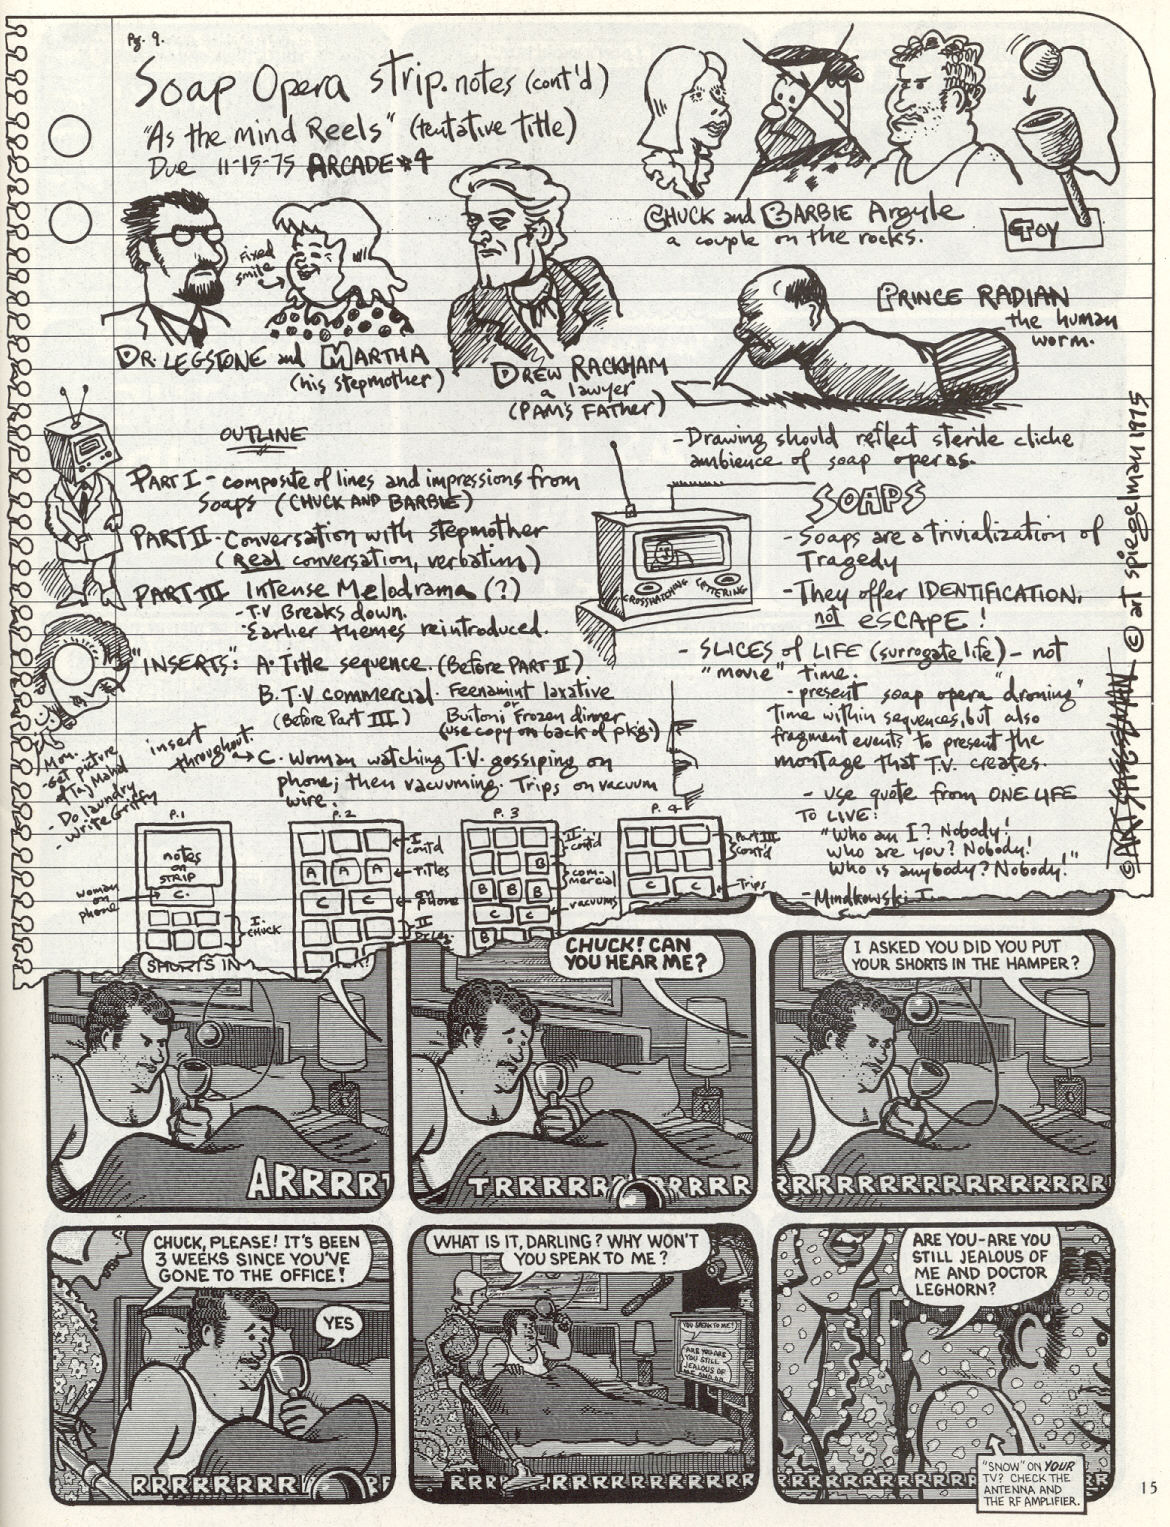 Pg. 9.
Soap Opera strip notes (cont'd)
"As the mind Reels" (tentative title)
Due 11-15-75 ARCADE #4
CHUCK and BARBIE Argyle
a couple on the rocks.
TOY
Fixed
smile
DR. LEGSTONE and MARTHA
(his stepmother)
DREW RACKHAM
a lawyer
(PAM'S FATHER)
PRINCE RADIAN
the human
worm.
-Drawing should reflect sterile cliche
ambience of soap operas.
OUTLINE
PART I - composite of lines and impressions from
Soaps (CHUCK AND BARBIE)
PART II - Conversation with stepmother
(Real conversation, verbatim)
PART III Intense Melodrama (?)
- T.V Breaks down.
- Earlier themes reintroduced.
"INSERTS": A. Title sequence. (Before PART II)
B. T.V commercial. Feenamint laxative
(Before Part III)
or
Buitoni Frozen dinner
(use copy on back of pkg.)
insert
throughout.
C. Woman watching T.V. gossiping on
phone; then vacuuming. Trips on vacuum
wire.
Mon.
-Get picture
of Taj Mahal
- Do laundry
- write Griffy
CROSSHATCHING
LETTERING
SOAPS
- Soaps are a trivialization of
Tragedy
- They offer IDENTIFICATION,
not ESCAPE!
- SLICES of LIFE (surrogate life) - not
"movie" time.
- present soap opera "droning"
time within sequences, but also
fragment events to present the
montage that T.V. creates.
- use quote from ONE LIFE
TO LIVE:
"Who am I? Nobody!
Who are you? Nobody!
Who is anybody? Nobody!"
© art spiegelman 1975
© ART SPIEGELMAN
P.1
notes
on
STRIP
C.
woman
on
phone
I.
CHUCK
P.2
I
cont'd
A A A
titles
C C
on
phone
II
P. 3
II.
cont'd
B
com-
mercial
B B B
C C
vacuums
B
P. 4
Part III
cont'd
C C
Trips
SHORTS IN
CHUCK! CAN
YOU HEAR ME?
I ASKED YOU DID YOU PUT
YOUR SHORTS IN THE HAMPER?
ARRRRR
TRRRRRRR RRRRR
RRRRRRRRRRRRRRRR
CHUCK, PLEASE! IT'S BEEN
3 WEEKS SINCE YOU'VE
GONE TO THE OFFICE!
YES
WHAT IS IT, DARLING? WHY WON'T
YOU SPEAK TO ME?
YOU SPEAK TO ME?
ARE YOU-ARE
YOU STILL
JEALOUS OF
ARE YOU-ARE YOU
STILL JEALOUS OF
ME AND DOCTOR
LEGHORN?
RRRRRRRRR
RRRR RRRRRRRRRR
RRRRRRRRR
"SNOW" ON YOUR
TV? CHECK THE
ANTENNA AND
THE RF AMPLIFIER.
15